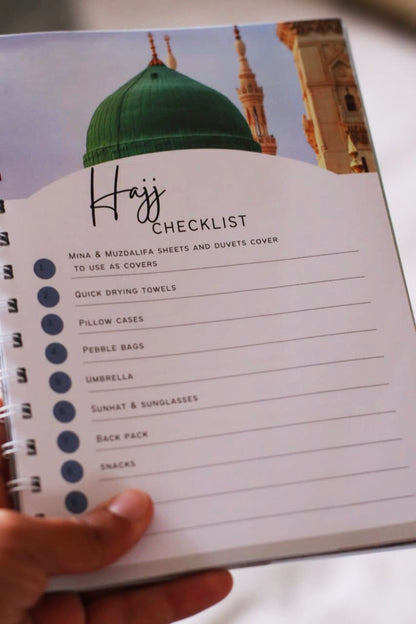 Hajj
CHECKLIST
1 MINA & MUZDALIFA SHEETS AND DUVETS COVER
TO USE AS COVERS
2 QUICK DRYING TOWELS
3 PILLOW CASES
4 PEBBLE BAGS
5 UMBRELLA
6 SUNHAT & SUNGLASSES
7 BACK PACK
8 SNACKS
9